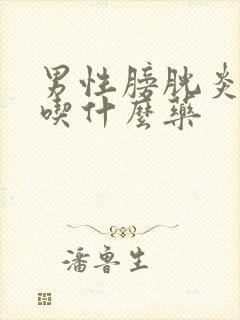 男性膀胱炎
喫什麼藥
潘鲁生